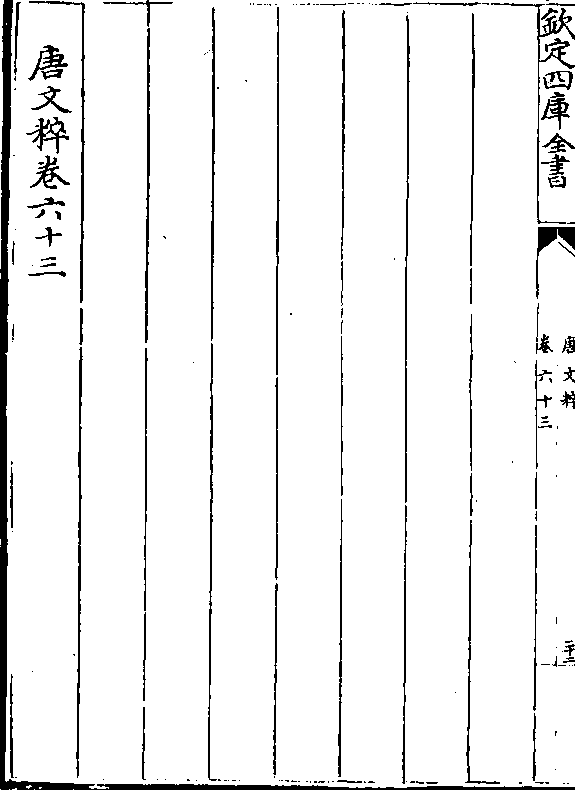 欽定四庫全書
唐文粹
卷六十三
唐文粹卷六十三